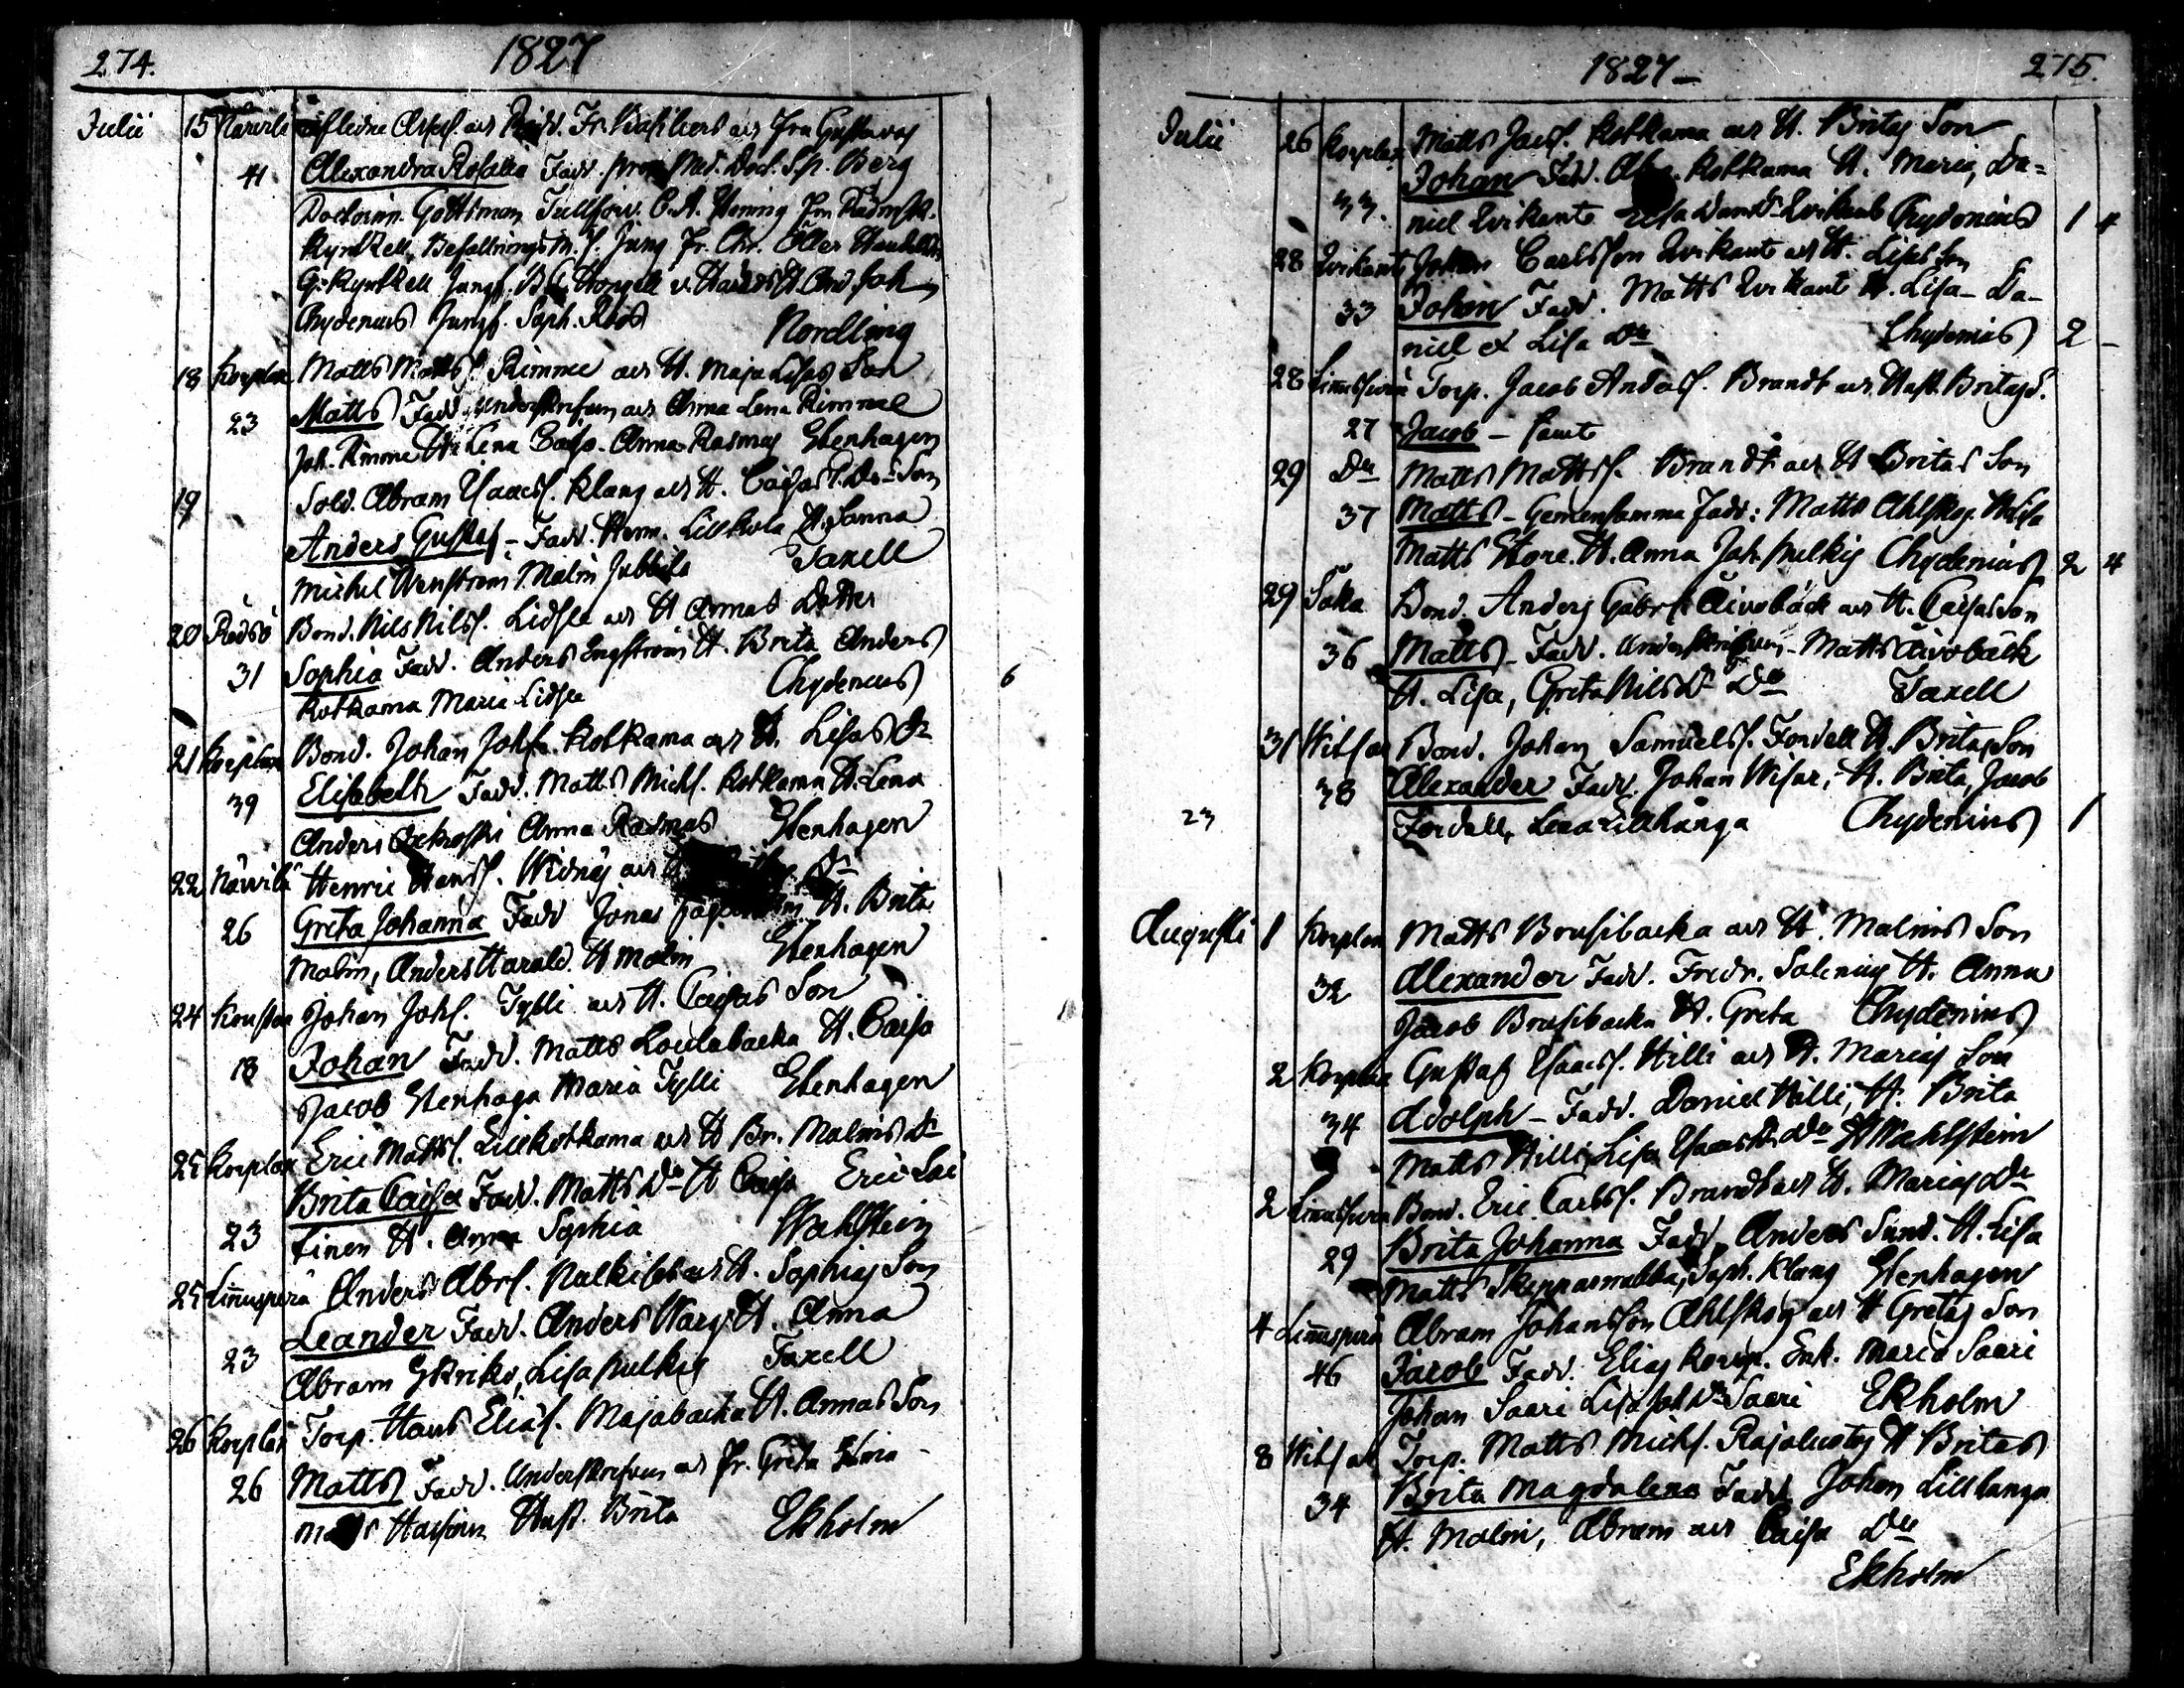 274.
1827
Julii 15 Närvilä afledne Fr. Gustavas
41 Alexandra Rosalia Fadd. Med. Doct. Sp. Berg
Doctorinn. Gottsman C. A. Hening
Kyntzell, Befallningsm. J. Jung Fr. Chr. Öller
G. Kyntzell Jungf. And. Joh
Chydenius Jungf. Soph. Roos Nordling
18 Korplax Matts Matts. Rimmee och H. Maja Lisas Son
23 Matts Fadd. Underskrefven och Anna Lena Rimmee
Joh. Rimme H. Lena Caisa. Anna Rasmus Stenhagen
19 Sold. Abram Isacs. Klang och H. Caisas Son
Anders Gustaf - Fadd. Herm. Lillkola H. Sanna
Michel Wenström Malin Jubbila Taxell
20 Rödsö Bond. Nils Nilss. Lidsle och H Annas Dotter
31 Sophia Fadd. Anders Engström H. Brita Anders
Kotkama Maria Lidsle Chydenius 6
21 Korplax Bond. Johan Johs. Kotkama och H. Lisas Dr
39 Elisabeth Fadd. Matts Michs. Kotkama H. Lena
Anders Anna Rasmus Stenhagen
22 Närvilä Henric Hanss. Widnäs och Dr
26 Greta Johanna Fadd Jonas H. Brita
Malin, Anders Harald. H Malin Stenhagen
24 Johan Johs. Tylli och H. Caisas Son
18 Johan Fadd. Matts Loulabacka H. Caisa
Jacob Stenhaga Maria Tylli Stenhagen
25 Korplax Eric Mattss. Lillkotkama och H Br. Malins Dr
Brita Caisa Fadd. Matts Do H Caisa Eric Lai
23 tinen H. Anna Sophia Wahlstein
25 Linnuspera Anders Abrs. och H. Sophias Son
23 Leander Fadd. Anders Warg H. Anna
Abram Lisa Pulkis Taxell
26 Korplax Torp. Hans Elias. Majabacka H. Annas Son
26 Matts Fadd. Underskrefven och Fr. Greta
Matts Hust. Brita Ekholm
1827 -
275.
Julii 26 Korplax Matts Jacs. Kotkama och H. Britas Son
33. Johan Fadd. Kotkama H. Maria, Da=
niel Wikante Lisa Chydenius 1 4
28 Johan Carlsson och H. Lisas Son
33 Johan Fadd. Matts H. Lisa - Da-
niel et Lisa Do Chydenius 2 -
28 Linnuspera Torp. Jacob Andass. Brandt och Hust. Britas S.
27 Jacob - samte
29 Do Matts Mattss. Brandt och H Britas Son
37 Matts - Gemensamma Fadd: Matts Ahlskog. H Lisa
Matts Store. H. Anna Joh. Pulkis Chydenius 2 4
29 Såka Bond. Anders Gabrs. Åivobäck och H. Caisas Son
36 Matts - Fadd. Underskrifven - Matts Åivobäck
H. Lisa, Greta Nils Dr Do Taxell
31 Witsar Bond. Johan Samuelss. Fordell H. Britas Son
38 Alexander Fadd. Johan Wisar, H. Brita, Jacob
23 Fordell, Lena Lillhånga Chydenius 1
Augusti 1 Korplax Matts Brusibacka och H. Malins Son
32 Alexander Fadd. Fredr. Salenius H. Anna
Jacob Brusibacka H. Greta Chydenius
2 Korplax Gustaf Isacs. Hilli och H. Marias Son
34 Adolph - Fadd. Daniel Hilli, H. Brita
Matts Hilli, Lisa Isacs Dr Do Wahlstein
2 Linnuspera Bond. Eric Carlss. Brandt och H. Marias Dr
29 Brita Johanna Fadd. Anders Sund. H. Lisa
Matts Skepparmalka, Soph. Klang Stenhagen
4 Linnuspera Abram Johansson Ahlskog och H Gretas Son
46 Jacob Fadd. Elias Korp. Enk. Maria Saari
Johan Saari Lisa Joh. Dr Saari Ekholm
8 Witsar Torp. Matts Michs. Rajalustas H Britas
34 Brita Magdalena Fadd Johan Lillhanga
H. Malin, Abram och Caisa Do
Ekholm